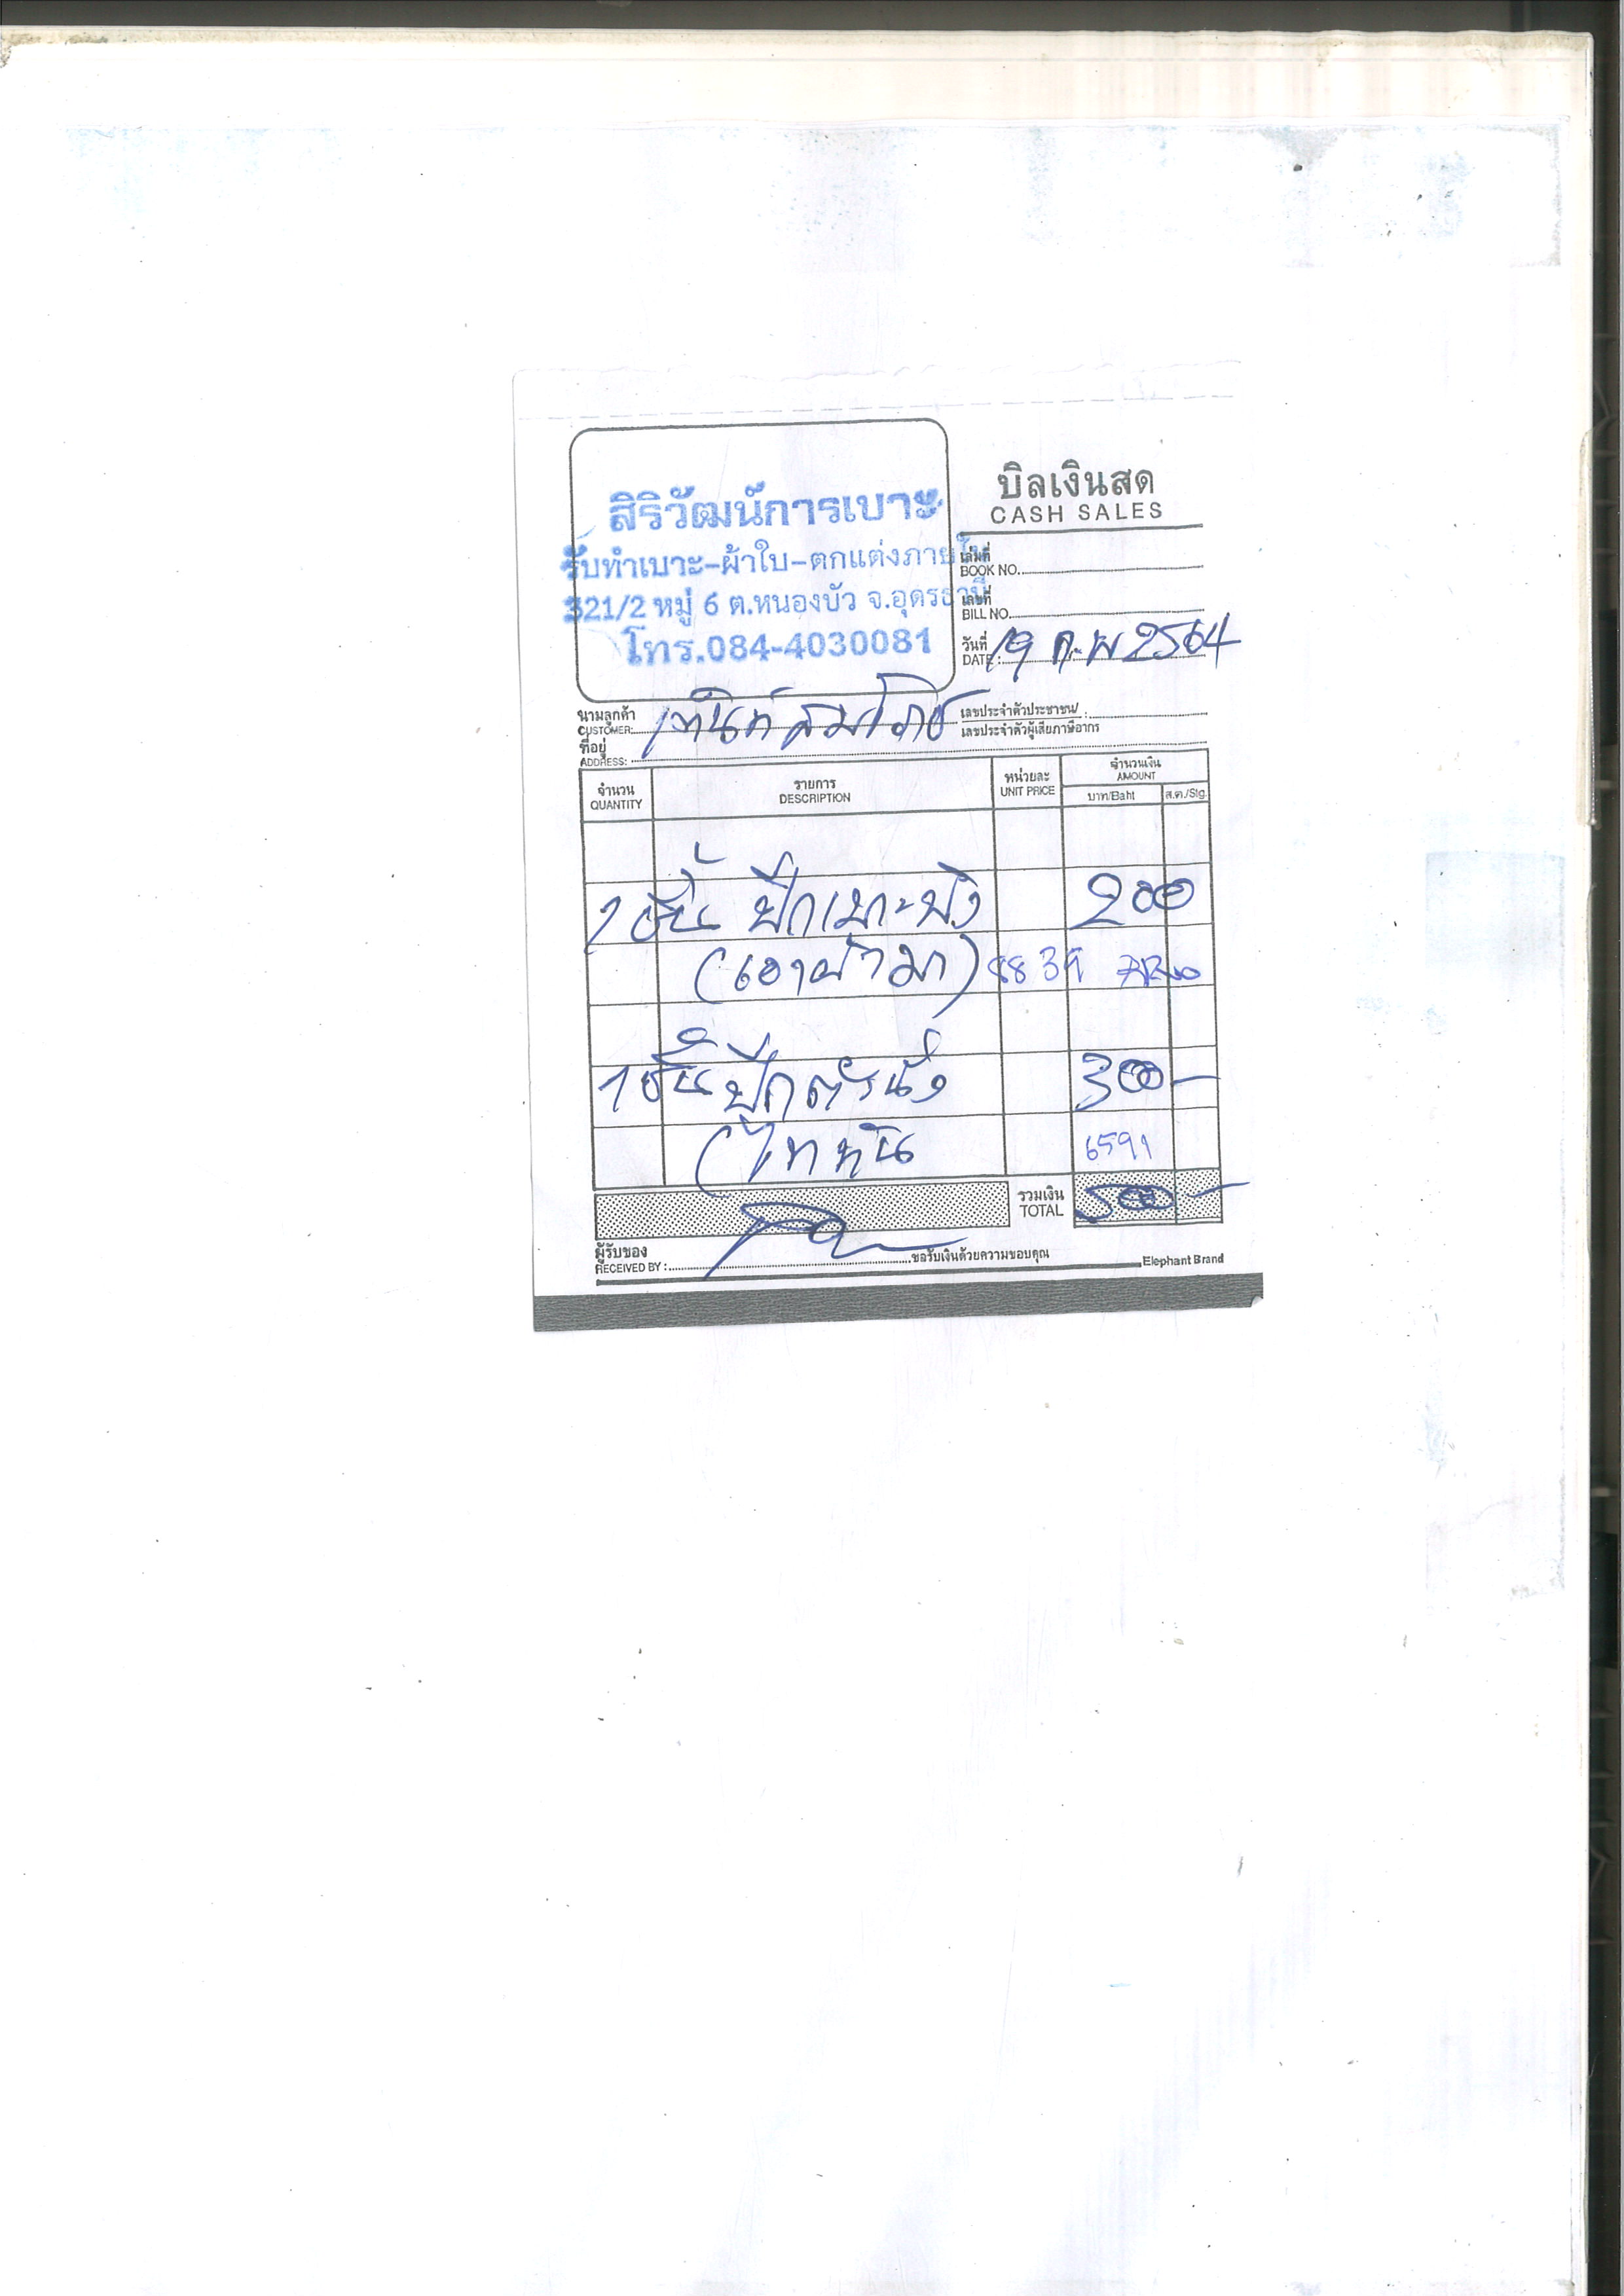 สิริวัฒน์การเบาะ
รับทำเบาะ-ผ้าใบ-ตกแต่งภายใน
321/2 หมู่ 6 ต.หนองบัว จ.อุดรธานี
โทร.084-4030081
บิลเงินสด
CASH SALES
เล่มที่
BOOK NO.
เลขที่
BILL NO.
วันที่
DATE : 19 ก.พ 2564
นามลูกค้า
CUSTOMER:
เลขประจำตัวประชาชน/ :
เลขประจำตัวผู้เสียภาษีอากร
ที่อยู่
ADDRESS:
จำนวน QUANTITY รายการ DESCRIPTION หน่วยละ UNIT PRICE จำนวนเงิน AMOUNT
บาท/Baht ส.ต./Stg.
1 ชิ้น ปีกเบาะพิง 200
(เอาผ้ามา) 8839
1 ชิ้น ปีกตัวนั่ง 300 -
6591
รวมเงิน TOTAL 500 -
ผู้รับของ
RECEIVED BY : ขอรับเงินด้วยความขอบคุณ
Elephant Brand